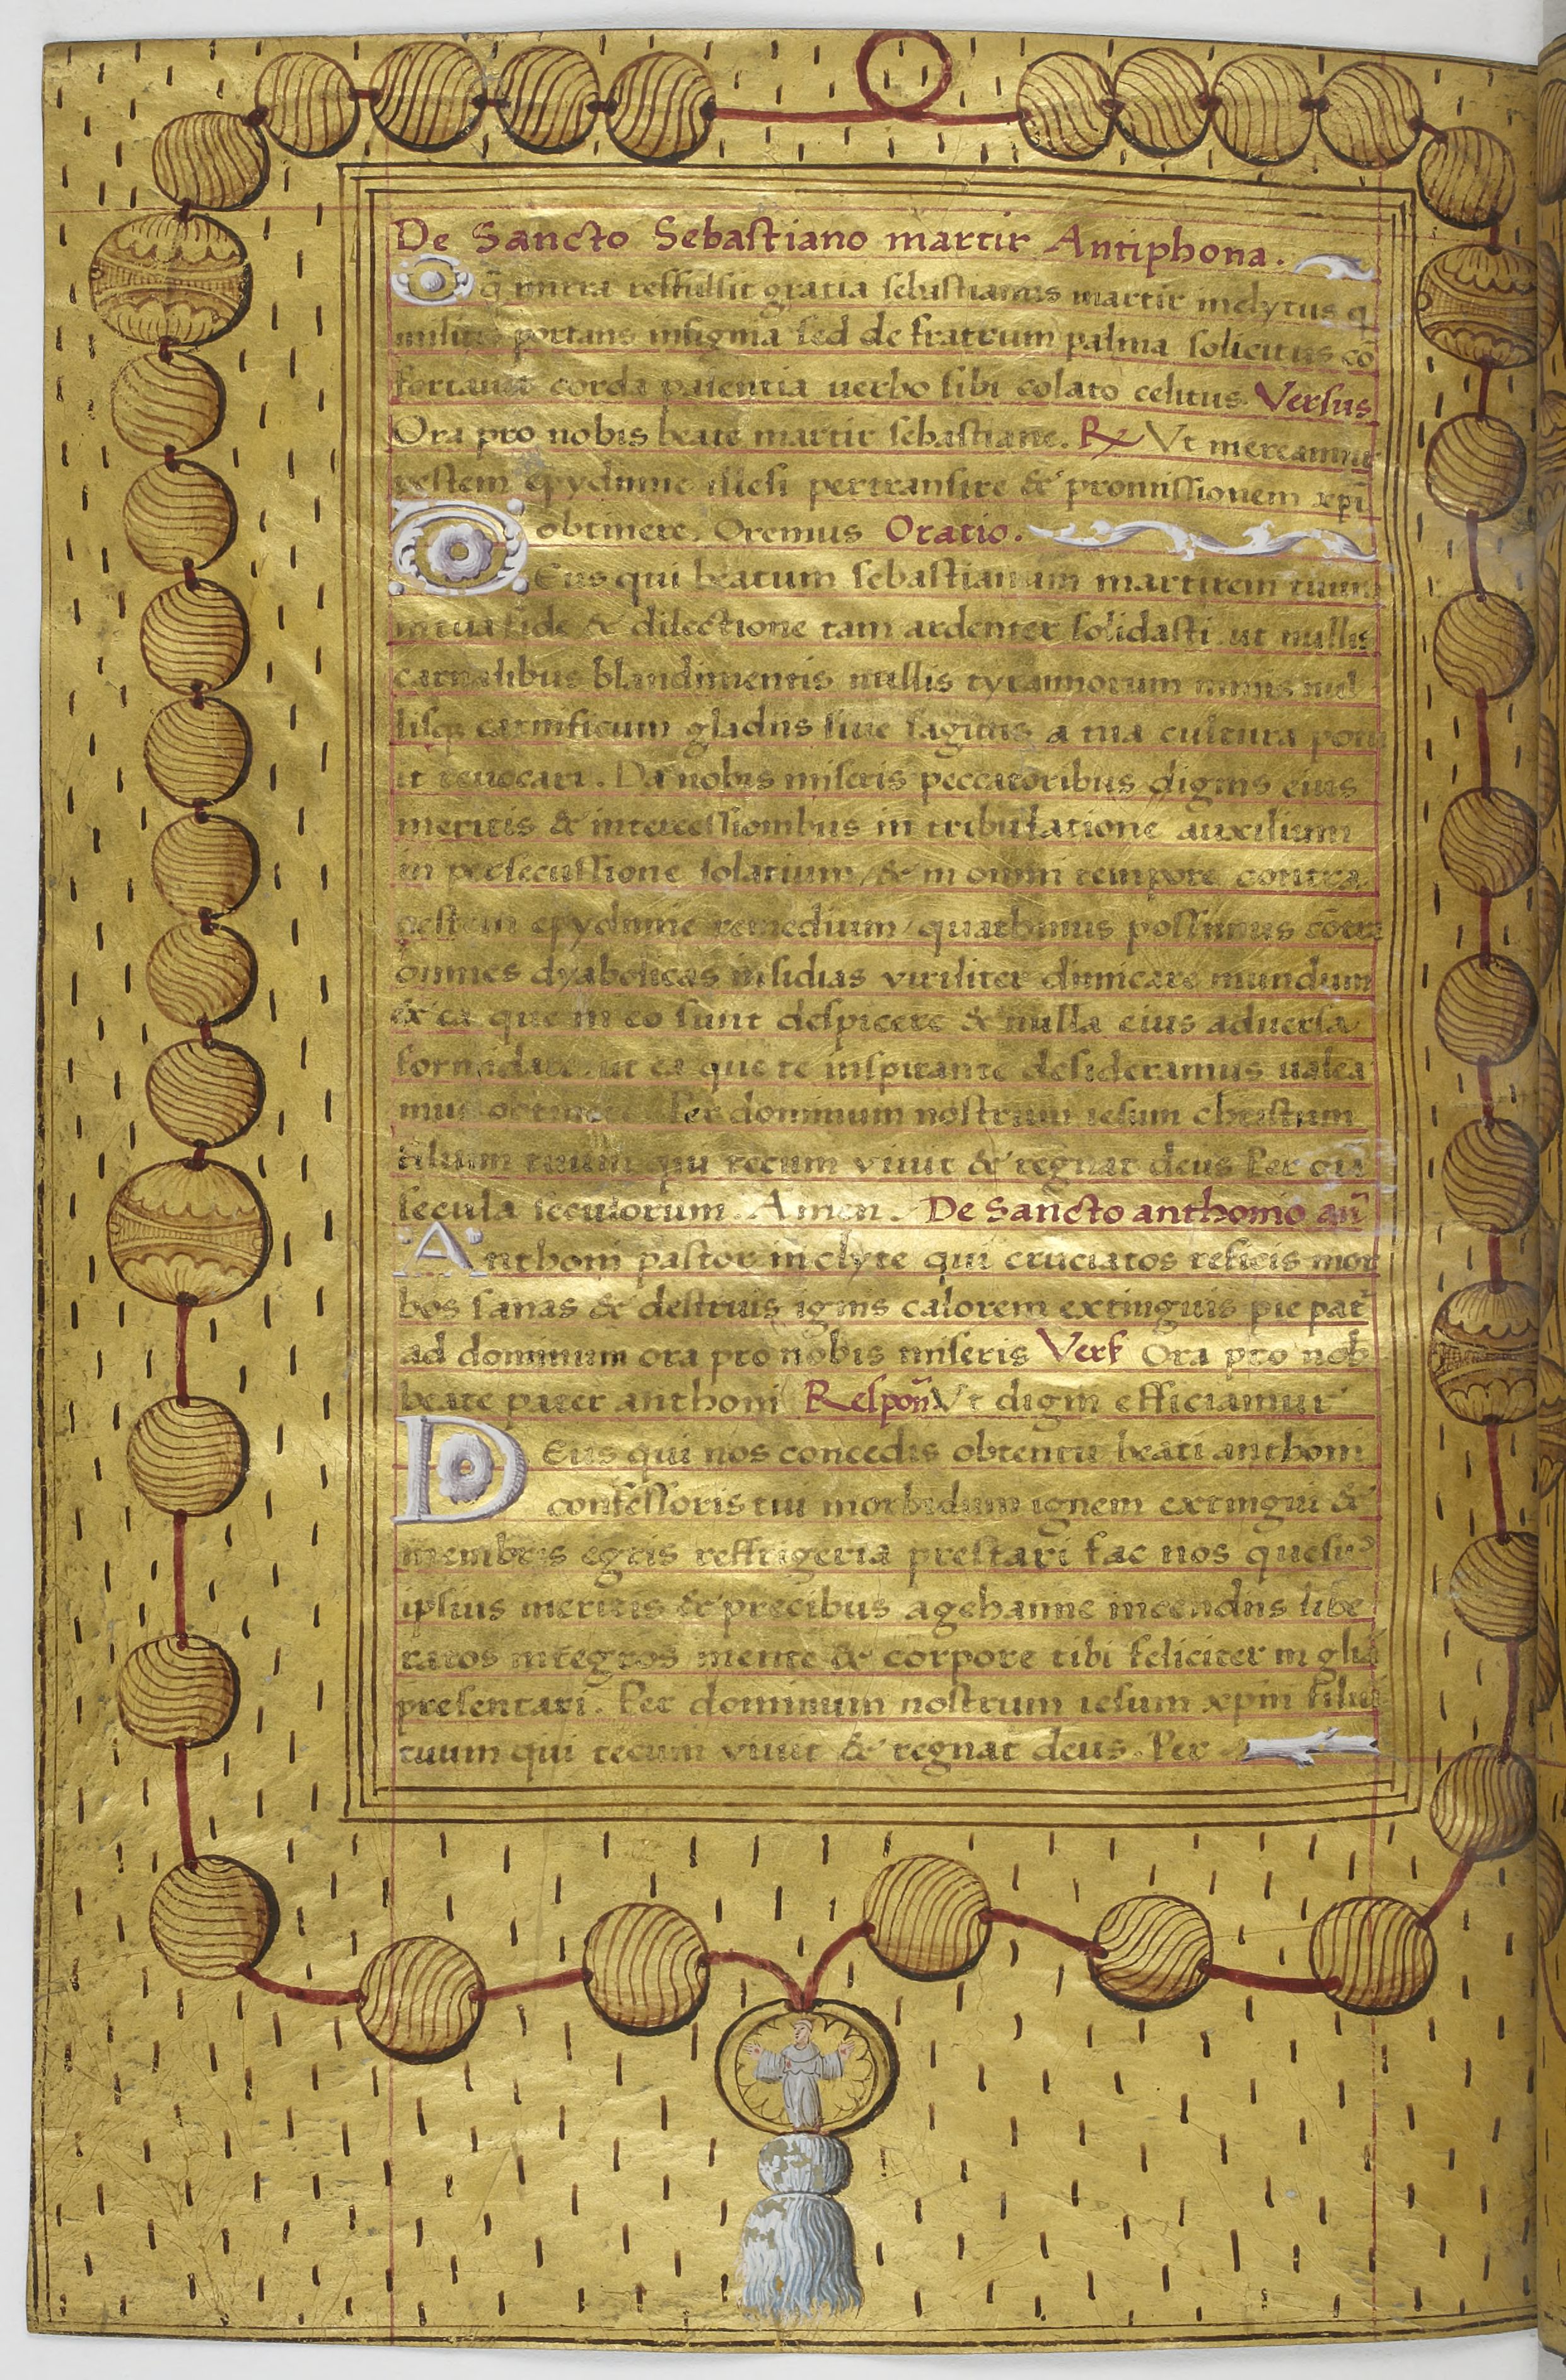 De Sancto Sebastiano martir Antiphona.
O q̃ mira reffulsit gratia sebastianus martir inclytus q
militis portans insignia sed de fratrum palma solicitus cõ
fortauit corda paientia uerbo sibi colato celitus. Versus
Ora pro nobis beate martir sebastiane. R Vt mereamur
pestem epydimie illesi pertransire & promissionem xp̃i
obtinere. Oremus Oratio.
DEus qui beatum sebastianum martirem tuum
in tua fide & dilectione tam ardenter solidasti ut nullis
carnalibus blandimentis nullis tyrannorum minis nul
lisq carnificum gladiis siue sagittis a tua cultura potu
it reuocari. Da nobis miseris peccatoribus dignis eius
meritis & intercessionibus in tribulatione auxilium
in persecussione solatium / & in omni tempore contra
pestem epydimie remedium / quathinus possimus cõtra
omnes dyabolicas insidias viriliter dimicare mundum
& ea que in eo sunt despicere & nulla eius aduersa
formidare. ut ea que te inspirante desideramus ualea
mus obtinere Per dominum nostrum iesum christum
filium tuum qui tecum viuit & regnat deus Per oĩa
secula seculorum. Amen. De Sancto anthonio añ
Anthoni pastor inclyte qui cruciatos reficis mor
bos sanas & destruis ignis calorem extinguis pie pat
ad dominum ora pro nobis miseris Vers Ora pro nob
beate pater anthoni Respoñ Vt digni efficiamur
DEus qui nos concedis obtentu beati anthoni
confessoris tui morbidum ignem extingui &
membris egris reffrigeria prestari fac nos quesu
ipsius meritis & precibus a gehanne incendiis libe
ratos integros mente & corpore tibi feliciter in glia
presentari. Per dominum nostrum iesum xpm filiu
tuum qui tecum viuit & regnat deus. Per